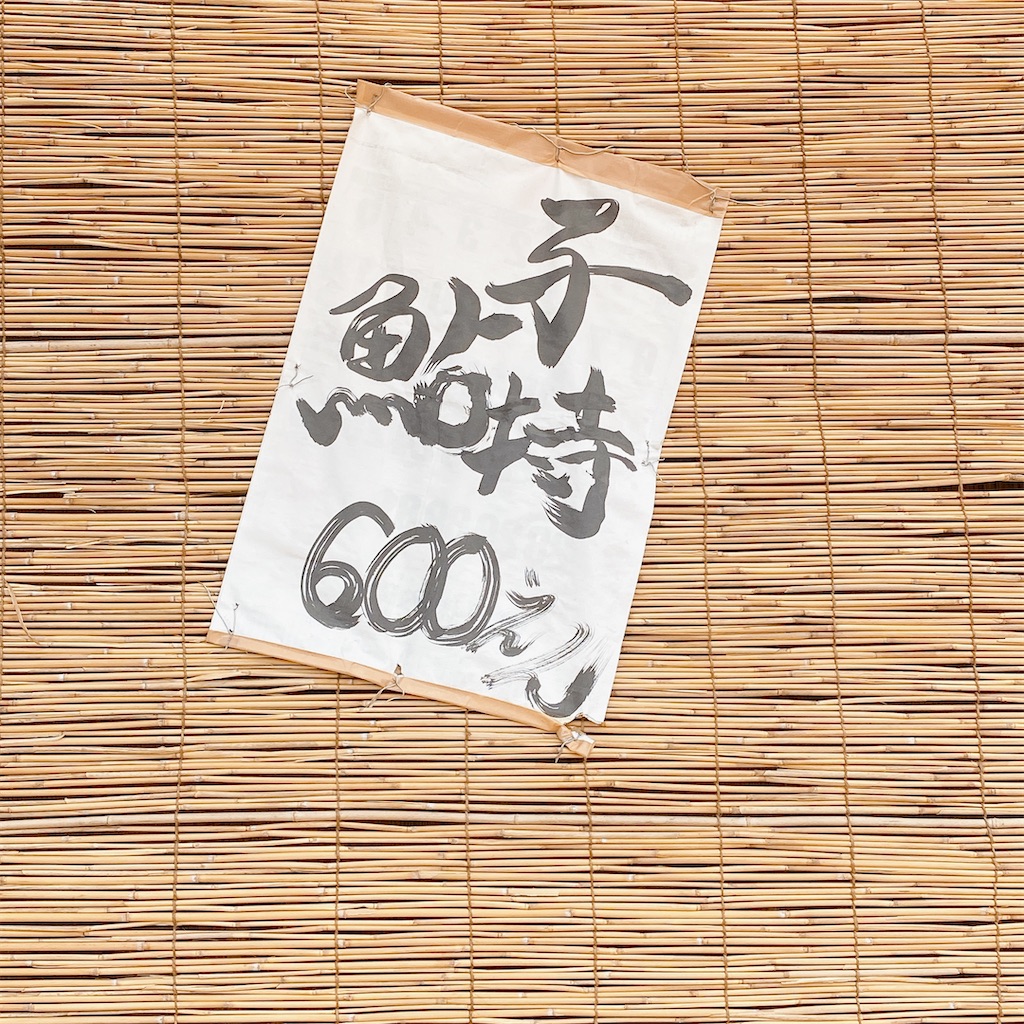 子持
鮎
600えん